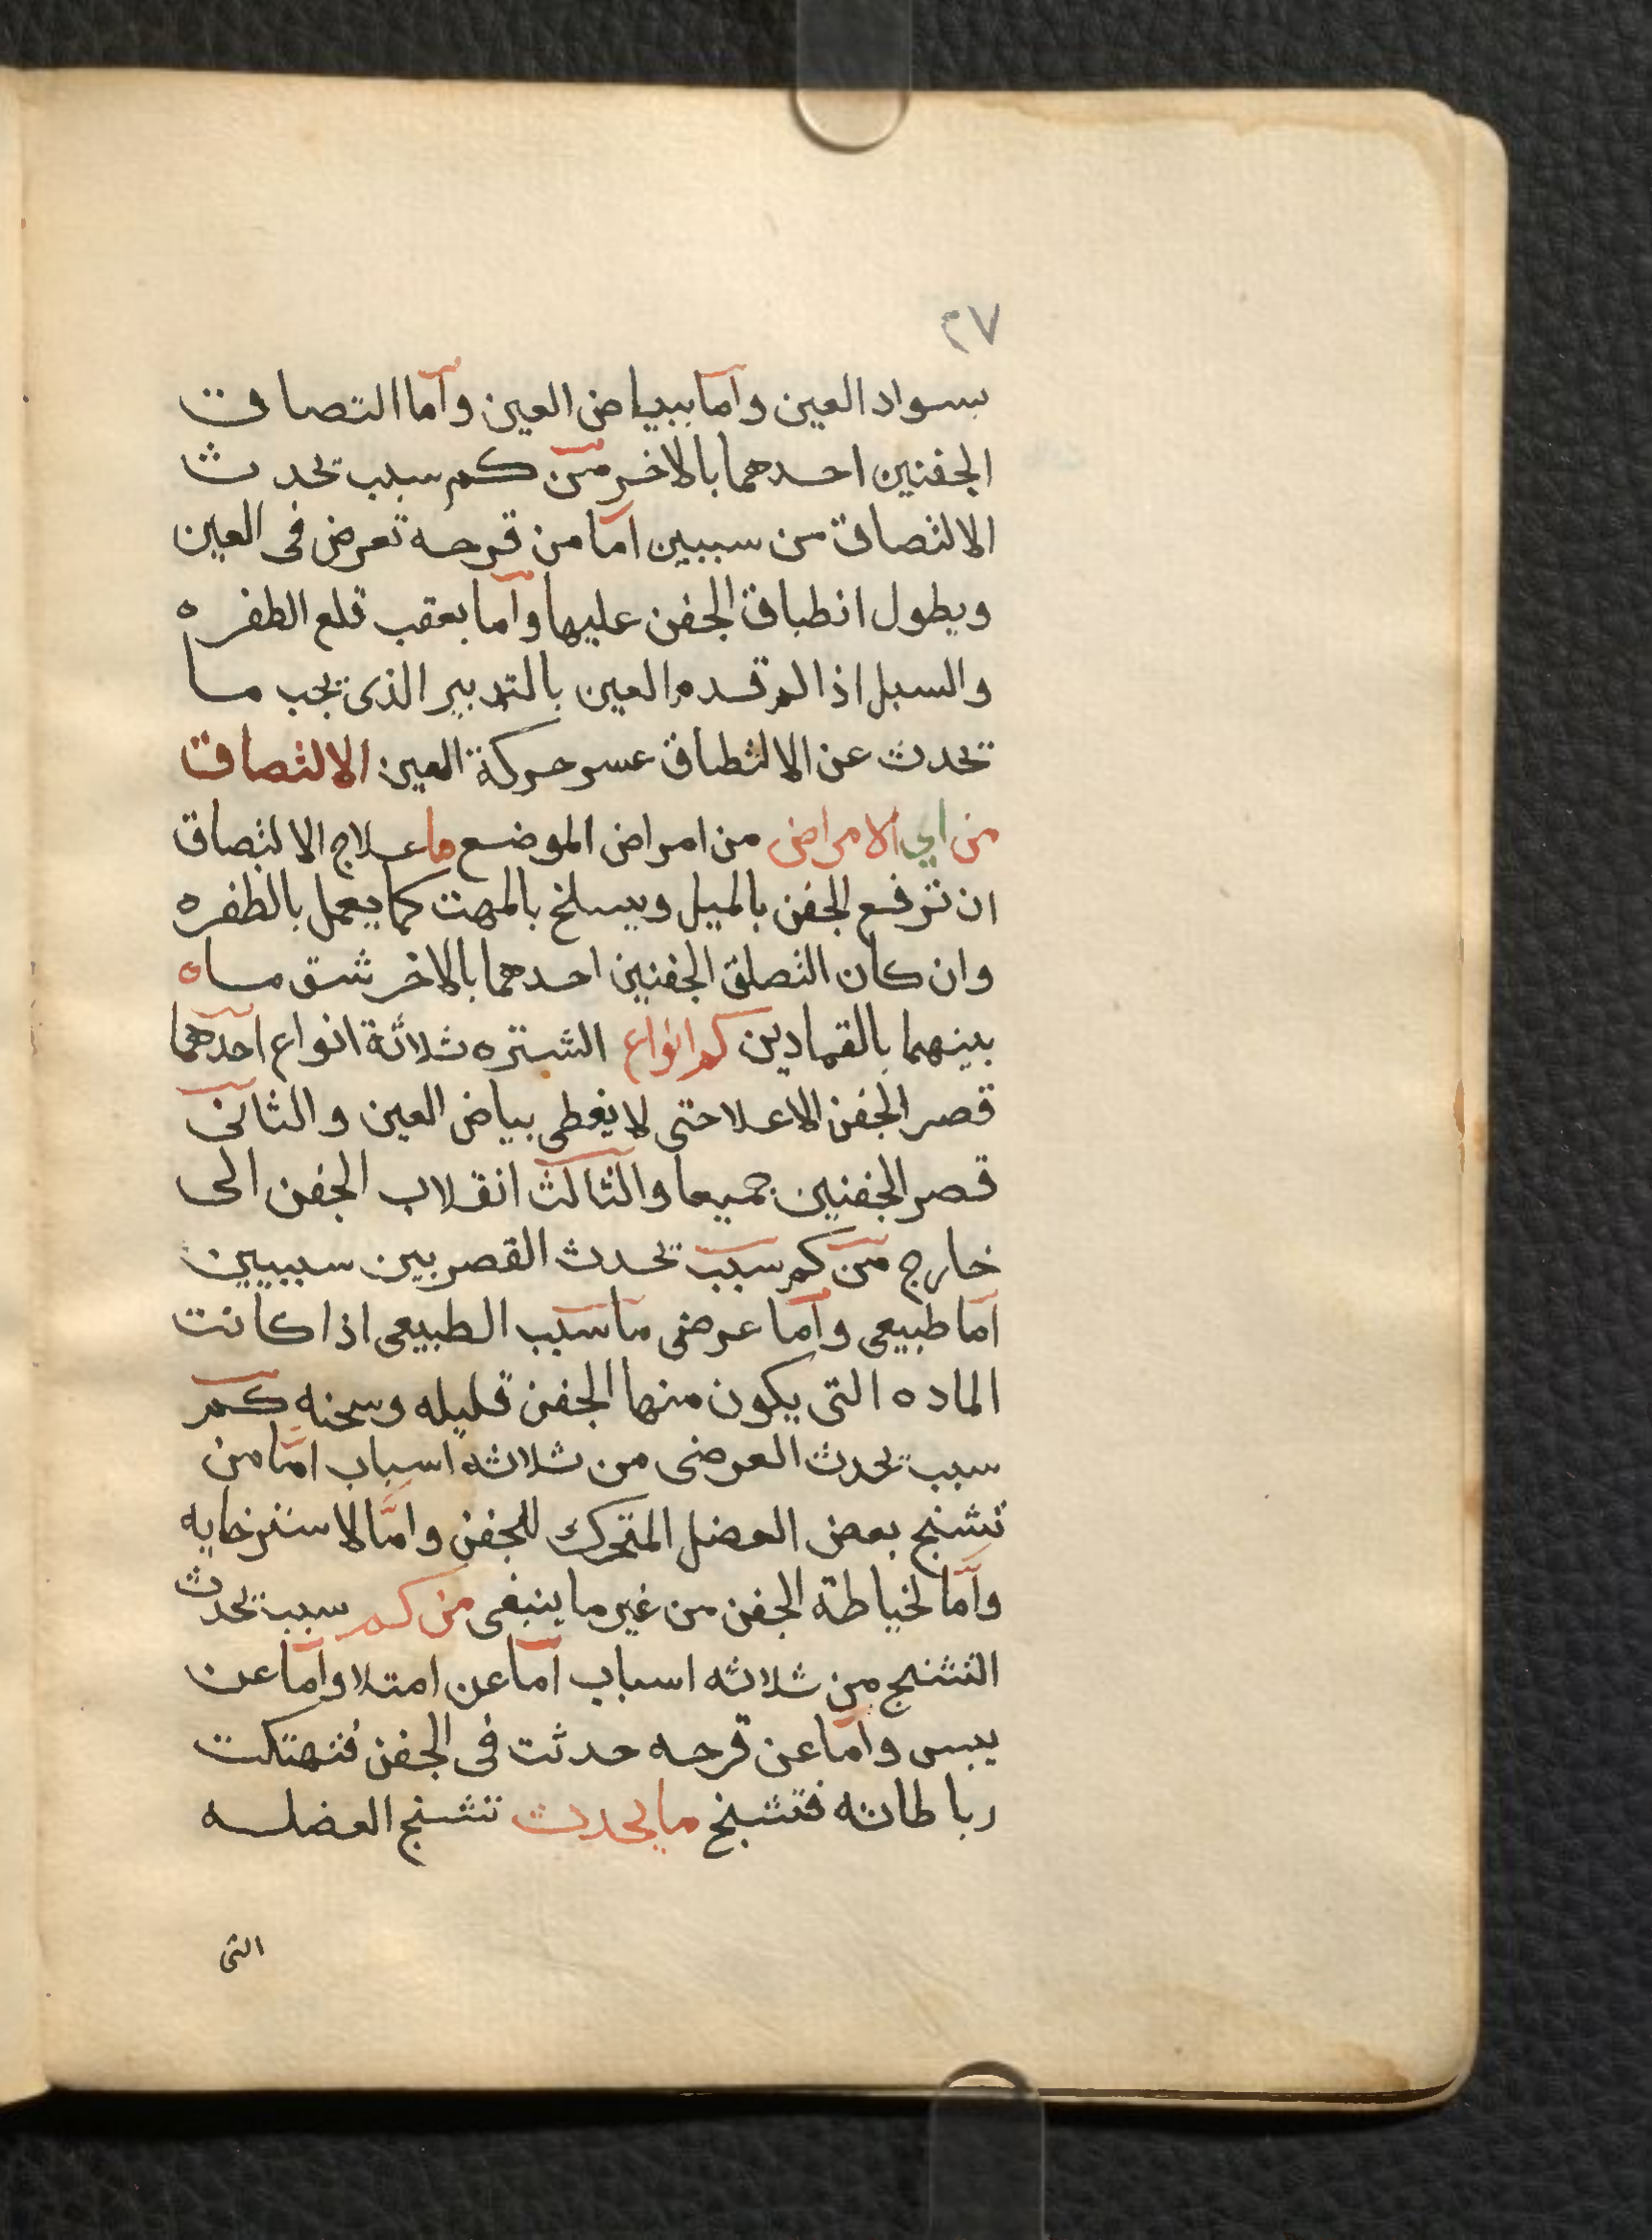 ٣٧
سواد العين واما ببياض العين واما التصاق
الجفنين احدهما بالاخر من كم سبب تحدث
الالتصاق من سببين اما من قرحه تعرض فى العين
ويطول انطباق الجفن عليها واما بعقب قلع الظفره
والسبل اذا لم قدم العين بالتدبير الذى يجب ما
تحدث عن الالتطاق عسر حركة العين الالتصاق
من اي الامراض من امراض الموضع ما علاج الالتصاق
ان ترفع الجفن بالميل ويسلخ بالمهت كما يعمل بالظفره
وان كان التصلق الجفنين احدهما بالاخر شق ماه
بينهما بالقمادين كم انواع الشتره ثلاثة انواع احدهما
قصر الجفن الاعلا حتى لا يغطى بياض العين والثانى
قصر الجفنين جميعا والثالث انقلاب الجفن الى
خارج من كم سبب تحدث القصر بين سببيين
اما طبيعى واما عرضى ما سبب الطبيعى اذا كانت
الماده التى يكون منها الجفن قليله وسخنه كم
سبب يحدث العرضى من ثلاثه اسباب امّا من
تشنج بعض العضل المتحرك للجفن وامّا لاسترخايه
واما لخياطة الجفن من غير ما ينبغى من كم سبب يحدث
التشنج من ثلاثه اسباب اما عن امتلا واما عن
يبس واما عن قرحه حدثت فى الجفن فتهتكت
رباطاته فتشنج ما يحدث تشنج العضله
التى